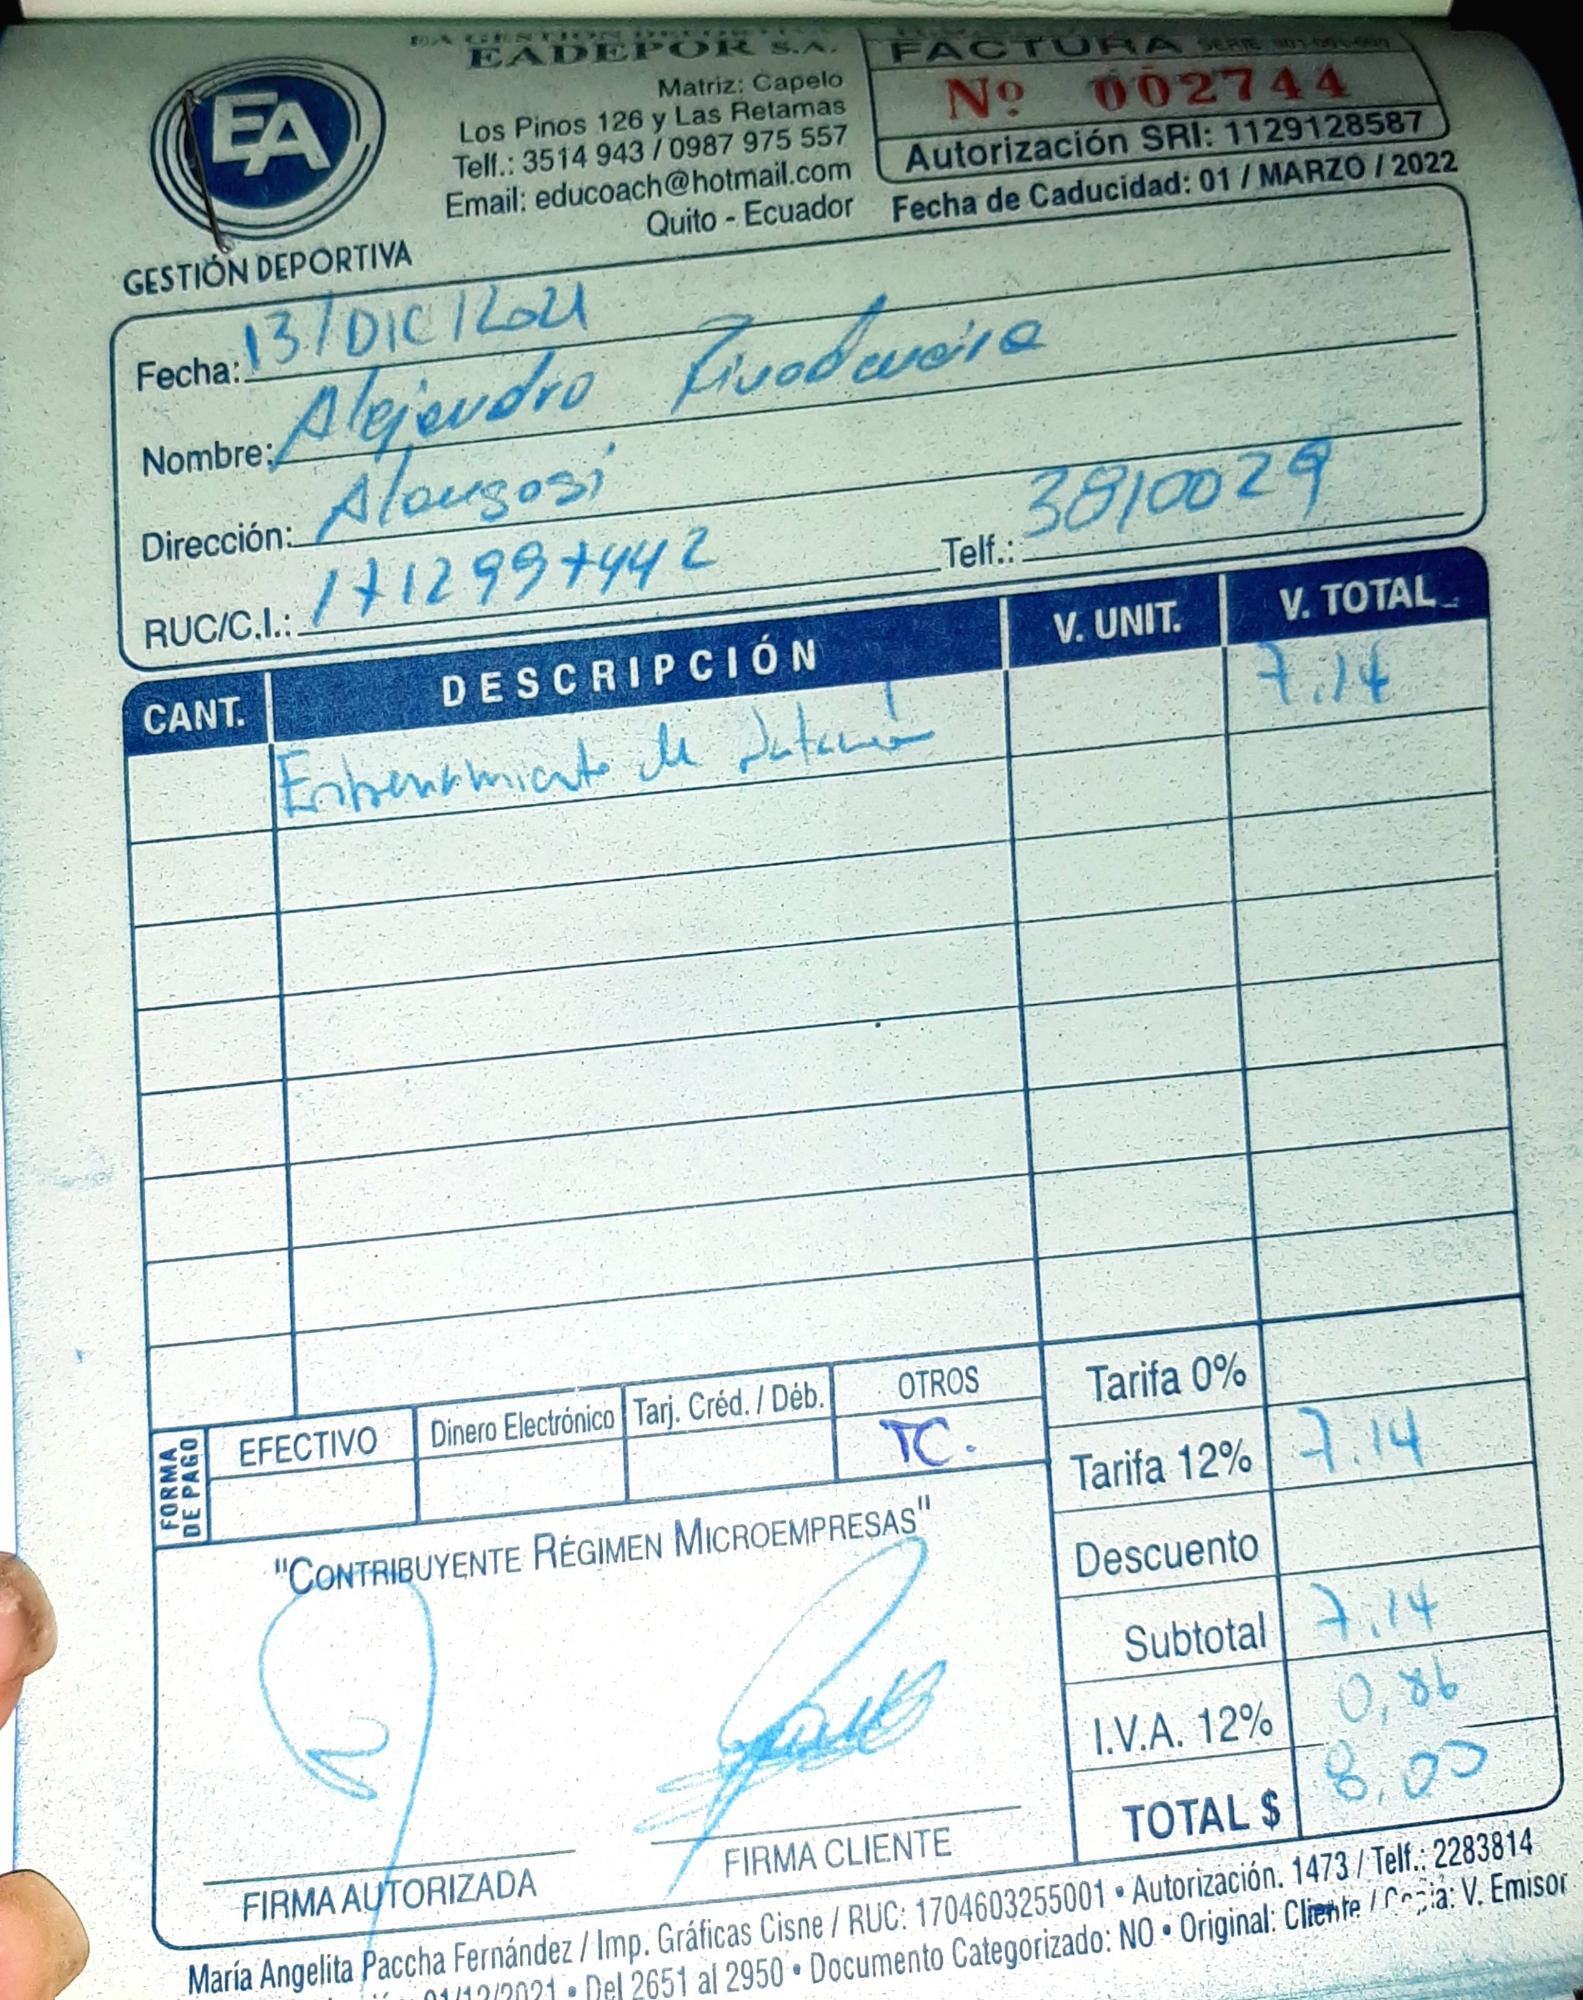 EA GESTION DEPORTIVA
EADEPOR S.A.
Matriz: Capelo
Los Pinos 126 y Las Retamas
Telf.: 3514 943 / 0987 975 557
Email: educoach@hotmail.com
Quito - Ecuador
EA
GESTIÓN DEPORTIVA
FACTURA SERIE 001-001-000
Nº 002744
Autorización SRI: 1129128587
Fecha de Caducidad: 01 / MARZO / 2022
Fecha: 13/DIC/2021
Nombre: Alejandro Rivadeneira
Dirección: Alangasi
RUC/C.I.: 1712997442 Telf.: 3810029
CANT. DESCRIPCIÓN V. UNIT. V. TOTAL
Entrenamiento de natación 7.14
FORMA DE PAGO
EFECTIVO Dinero Electrónico Tarj. Créd. / Déb. OTROS
TC.
Tarifa 0%
Tarifa 12% 7.14
Descuento
Subtotal 7.14
I.V.A. 12% 0,86
TOTAL $ 8,00
"CONTRIBUYENTE RÉGIMEN MICROEMPRESAS"
FIRMA AUTORIZADA FIRMA CLIENTE
María Angelita Paccha Fernández / Imp. Gráficas Cisne / RUC: 1704603255001 • Autorización. 1473 / Telf.: 2283814
01/12/2021 • Del 2651 al 2950 • Documento Categorizado: NO • Original: Cliente / Copia: V. Emisor